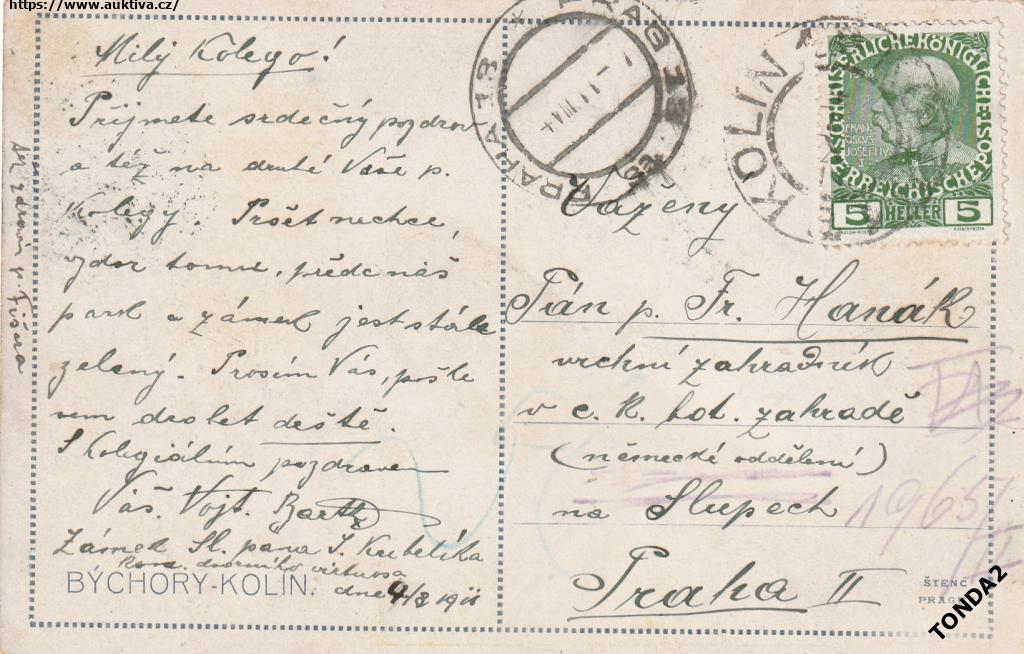 https://www.auktiva.cz/
Milý Kolego!
Přijmete srdečný pozdrav
a též na druhé Vaše p.
Kolegy. Pršet nechce,
vzdor tomu, přede náš
park a zámek jest stále
zelený. Prosím Vás, pošle
sem deště.
S Kolegiálním pozdravem
Váš. Vojt.
Zámek Sl. pana J. Kubelíka
dvorního virtuosa
BÝCHORY-KOLÍN.
dne 4/8 1911
zdraví p. Fišera
PRAHA 13 * PRAG 13
KOLÍN
KAISERLICHE KÖNIGLICHE
ÖSTERREICHISCHE POST
1908
FRAN
CISCVS
JOSEPHVS
I
5 HELLER 5
Vážený
Pán p. Fr. Hanák
vrchní zahradník
v c. k. bot. zahradě
(německé oddělení)
na Slupech
Praha II
1965/
ŠTENC
PRAG
TONDA2